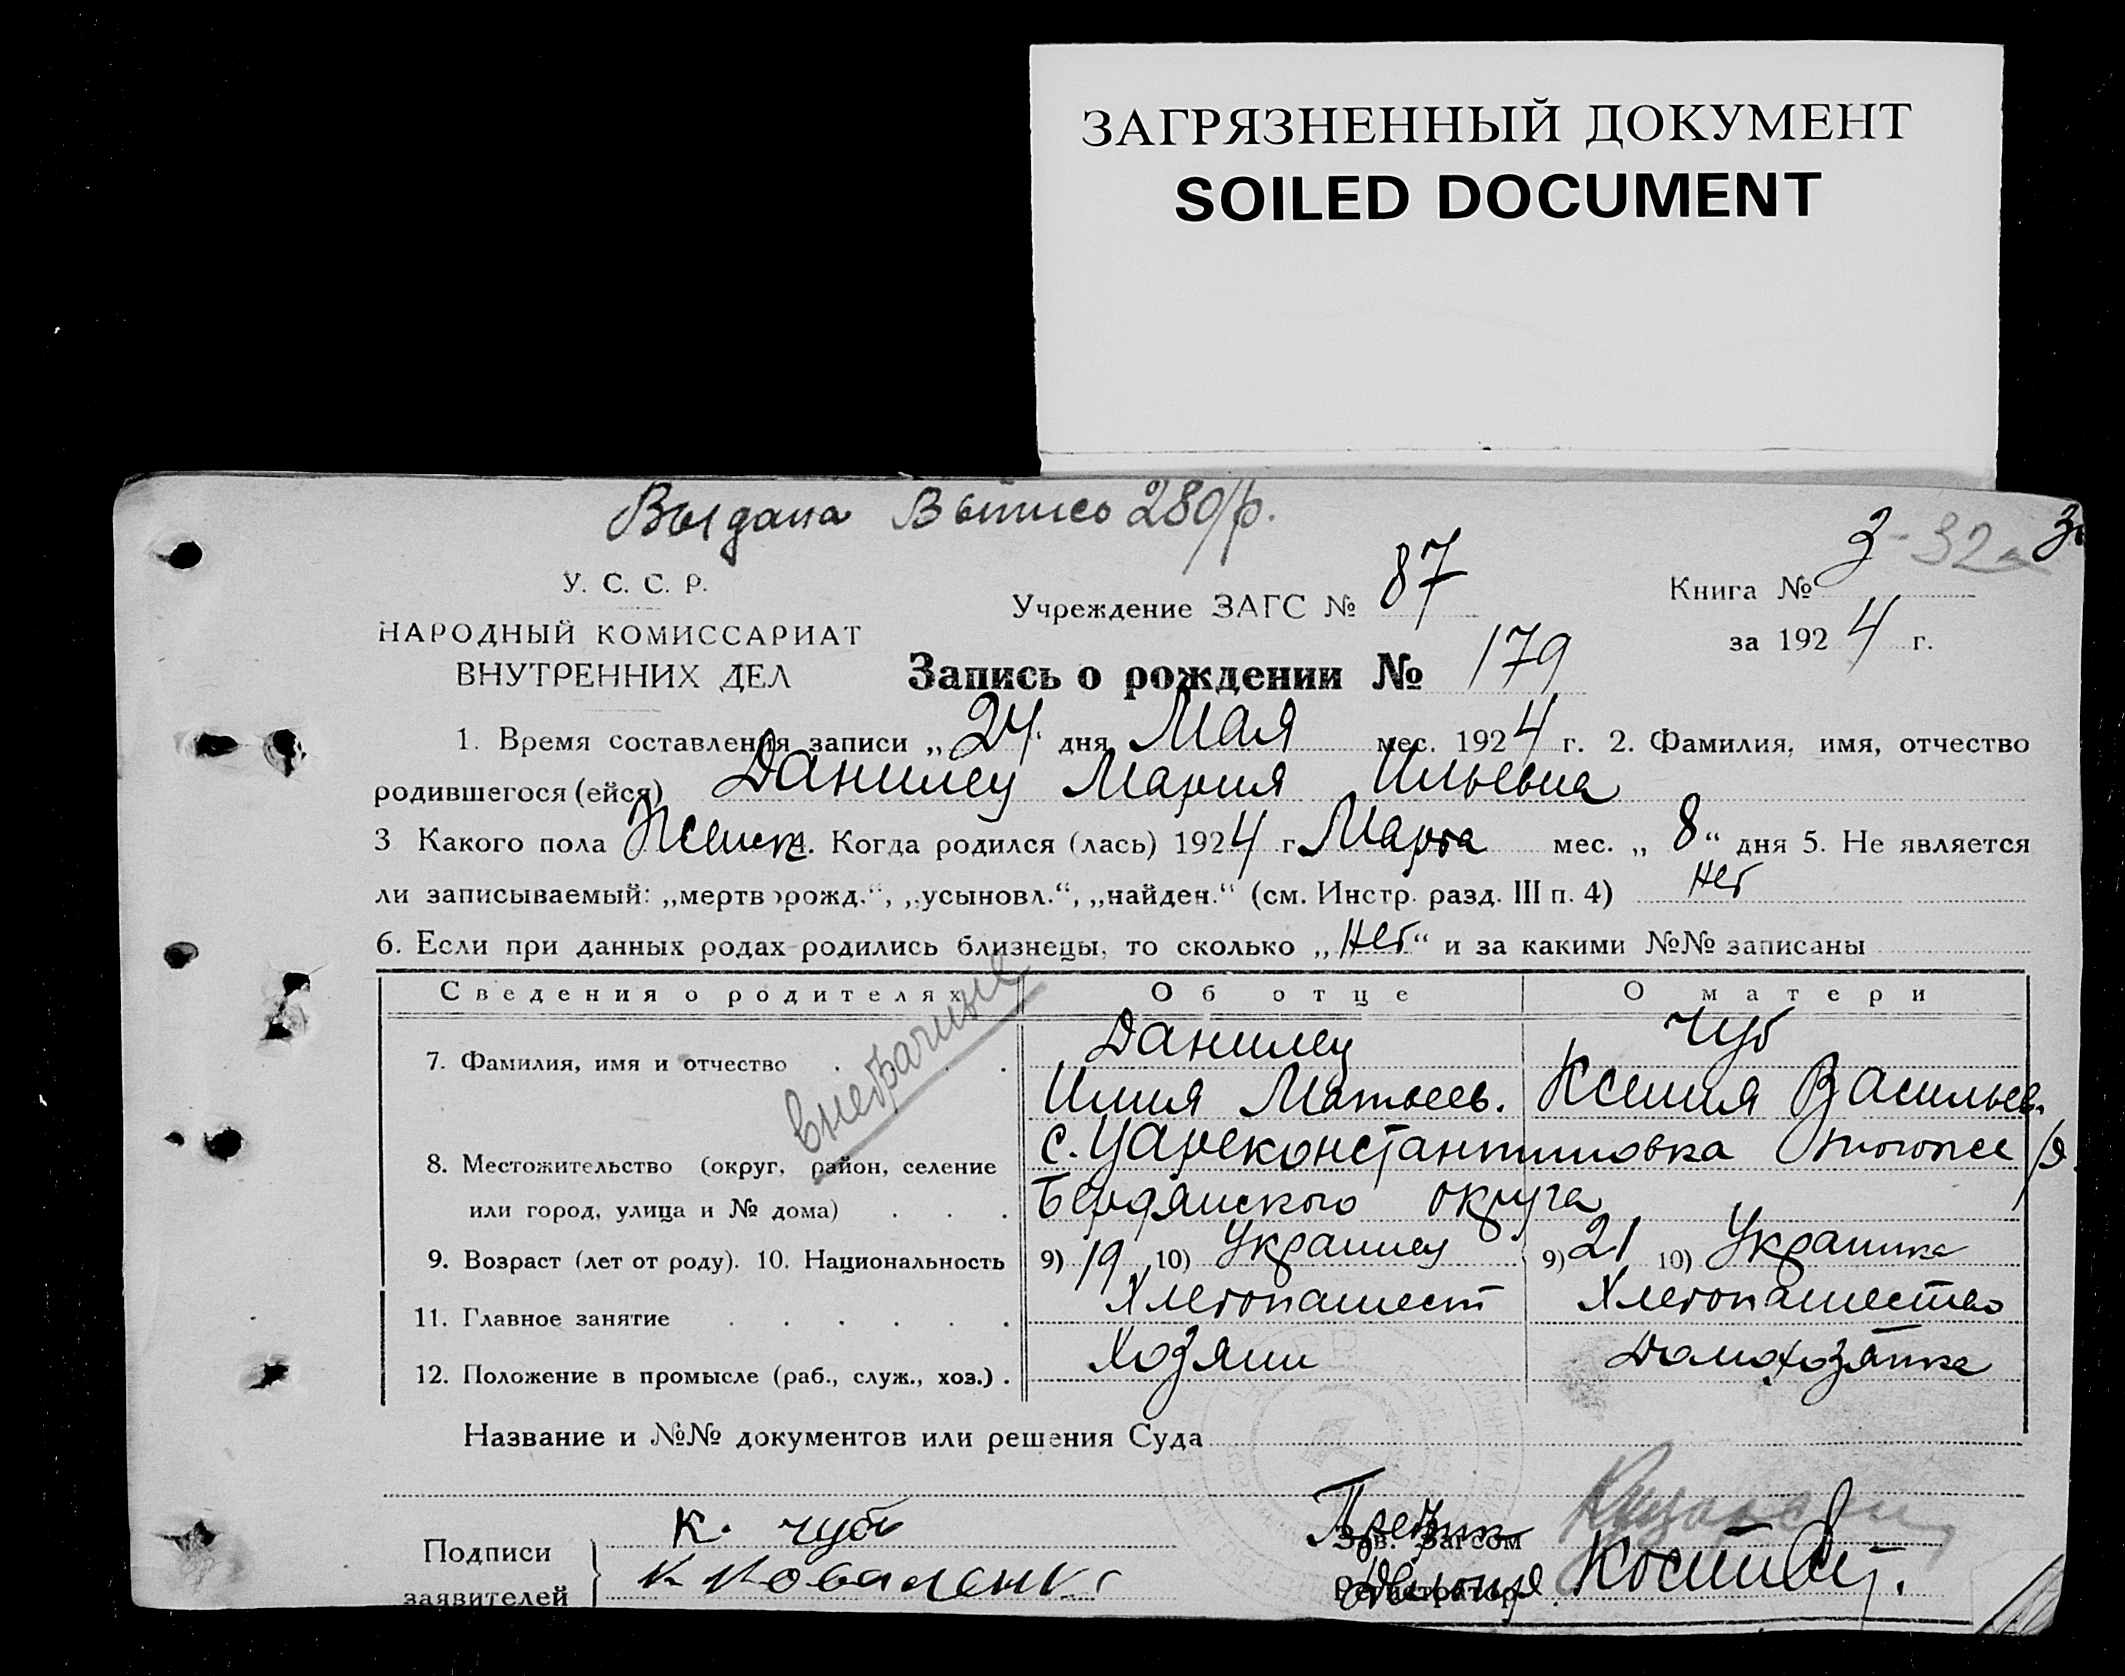 ЗАГРЯЗНЕННЫЙ ДОКУМЕНТ
SOILED DOCUMENT
Выдана Выпись 280/р.
3 - 32
У. С. С. Р.
Учреждение ЗАГС № 87
Книга №
НАРОДНЫЙ КОМИССАРИАТ
за 1924 г.
ВНУТРЕННИХ ДЕЛ
Запись о рождении № 179
1. Время составления записи „24" дня Мая мес. 1924 г. 2. Фамилия, имя, отчество
родившегося (ейся) Данилец Мария Ильевна
3 Какого пола Женск. Когда родился (лась) 1924 г. Марта мес. „8" дня 5. Не является
ли записываемый: „мертворожд.", „усыновл.", „найден." (см. Инстр. разд. III п. 4) нет
6. Если при данных родах родились близнецы, то сколько „нет" и за какими №№ записаны
Сведения о родителях Об отце О матери
внебрачные
7. Фамилия, имя и отчество . . . Данилец Чуб
Илия Матвеев. Ксения Васильев.
8. Местожительство (округ, район, селение с. Цареконстантиновка
или город, улица и № дома) . . . Бердянского округа
9. Возраст (лет от роду). 10. Национальность 9) 19 10) Украинец 9) 21 10) Украинка
11. Главное занятие . . . . . . Хлебопашест Хлебопашество
12. Положение в промысле (раб., служ., хоз.) . Хозяин Домохозяйка
Название и №№ документов или решения Суда
Подписи
заявителей
К. Чуб
К Коваленко
Зав. Загсом
Регистратор